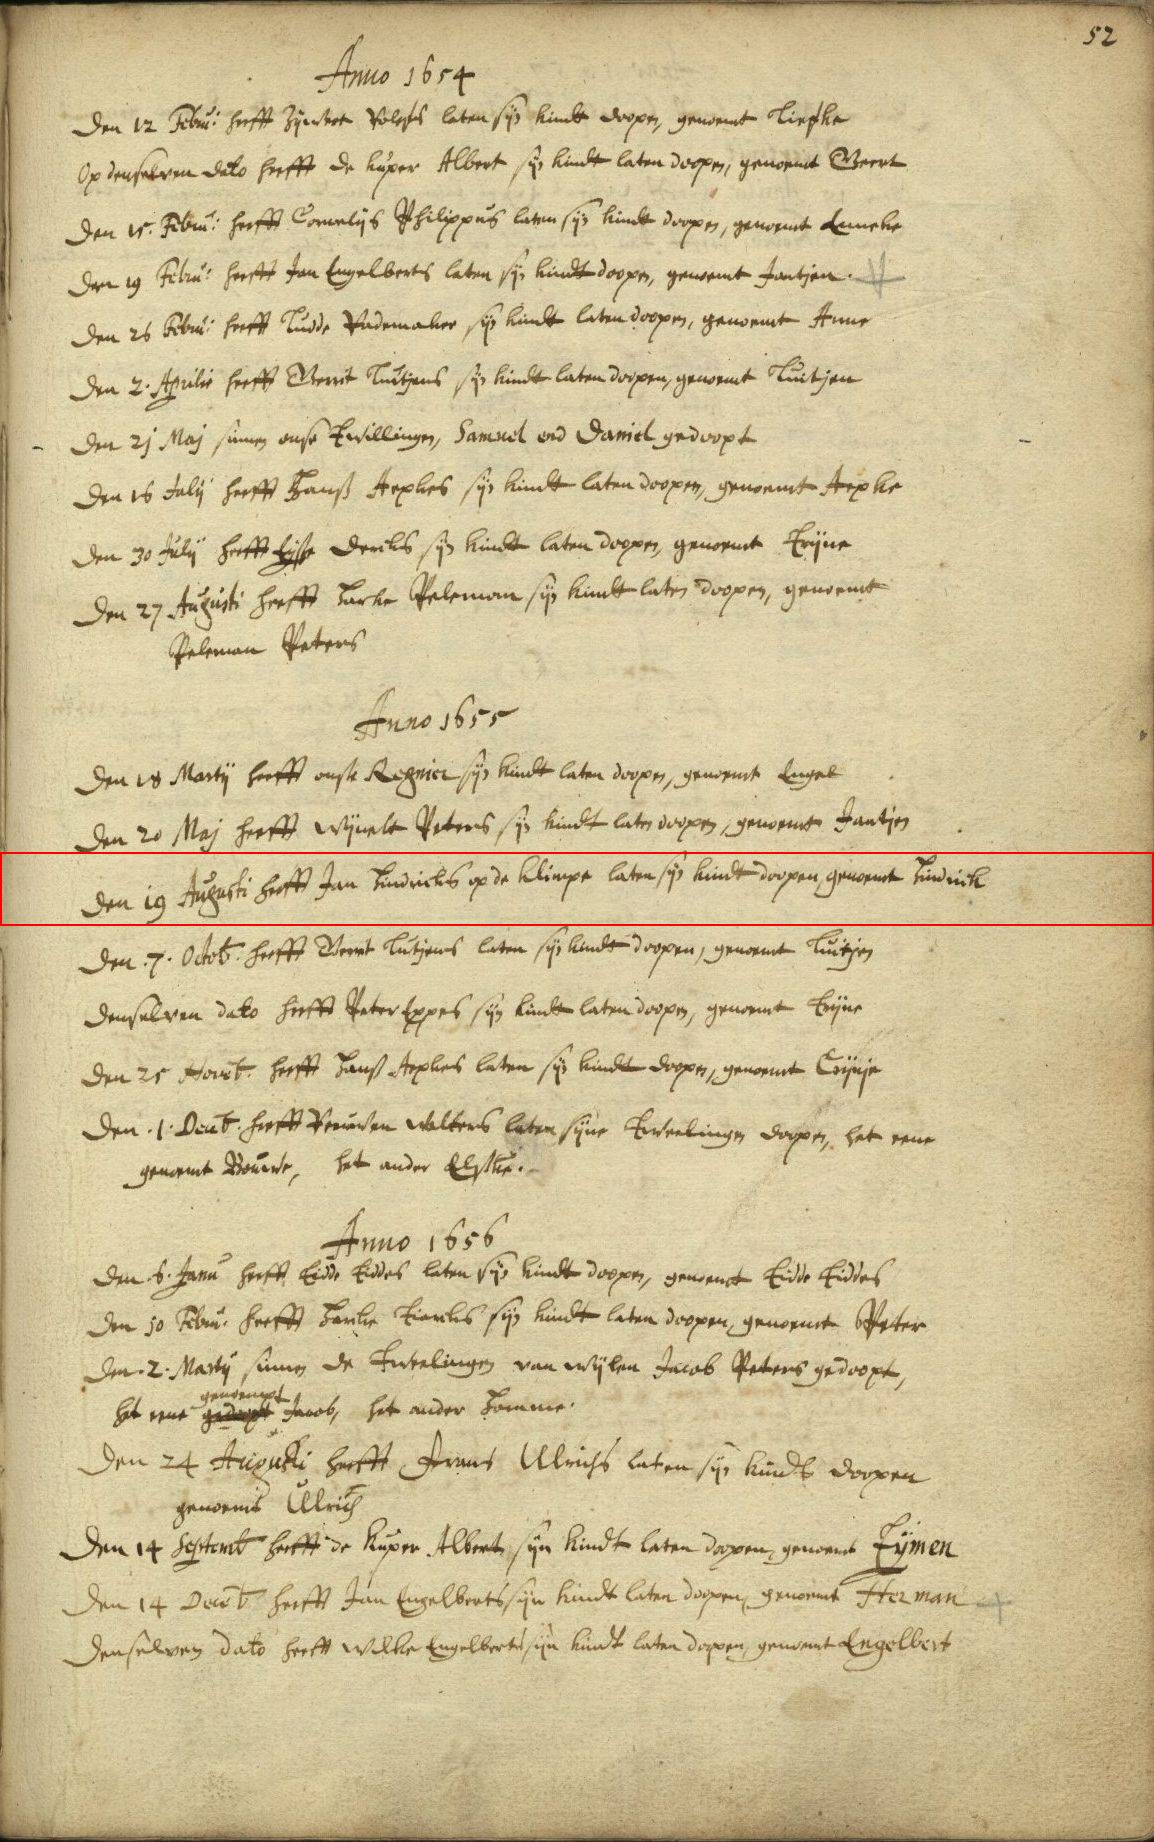 52
Anno 1654
Den 12 Febru: heefft laten syn kindt doopen, genoemt
Op denselven dato heefft de kuper Albert syn kindt laten doopen, genoemt Geert
Den 15. Febru: heefft Cornelijs Philippus laten syn kindt doopen, genoemt Enneke
Den 19 Febru: heefft Jan Engelberts laten syn kindt doopen, genoemt Jantjen.
Den 26 Febru: heefft Ludde Rademaker syn kindt laten doopen, genoemt Anne
Den 2. Aprilis heefft Gerrit Luitjens syn kindt laten doopen, genoemt Luitjen
Den 21 Maj sinnen onse Twillingen, Samuel end Daniel gedoopt
Den 16 July heefft Hanß Aepkes syn kindt laten doopen, genoemt Aepke
Den 30 July heefft Dercks syn kindt laten doopen, genoemt Trijne
Den 27 Augusti heefft Harke Peleman syn kindt laten doopen, genoemt
Peleman Peters
Anno 1655
Den 18 Martij heefft onse Regnier syn kindt laten doopen, genoemt Engel
Den 20 Maj heefft Wijnelt Peters syn kindt laten doopen, genoemt Jantjen
Den 19 Augusti heefft Jan Hindricks op de Klimpe laten syn kindt doopen, genoemt Hindrick
Den .7. Octob: heefft Geert Lutjens laten syn kindt doopen, genoemt Luitjen
Denselven dato heefft Peter Eppes syn kindt laten doopen, genoemt Trijne
Den 25 Novēb. heefft Hanß Aepkes laten syn kindt doopen, genoemt
Den .1. Decēb. heefft Wolters laten syne Tweelingen doopen, het eene
genoemt Bouwe, het ander Elske.
Anno 1656
Den .6. Janu heefft Eidde Eiddes laten syn kindt doopen, genoemt Eidde Eiddes
Den 10 Febru: heefft Harke syn kindt laten doopen, genoemt Peter
Den .2. Martij sinnen de Tweelingen van wijlen Jacob Peters gedoopt,
genoempt
het eene gedoopt Jacob, het ander Homme.
Den 24 Augusti heefft Frans Ulrichs laten syn kindt doopen
genoemt Ulrich
Den 14 Septemb heefft de kuper Albert syn kindt laten doopen, genoemt Tijmen
Den 14 Decēb heefft Jan Engelberts syn kindt laten doopen, genoemt Herman
Denselven dato heefft Wilke Engelberts syn kindt laten doopen, genoemt Engelbert